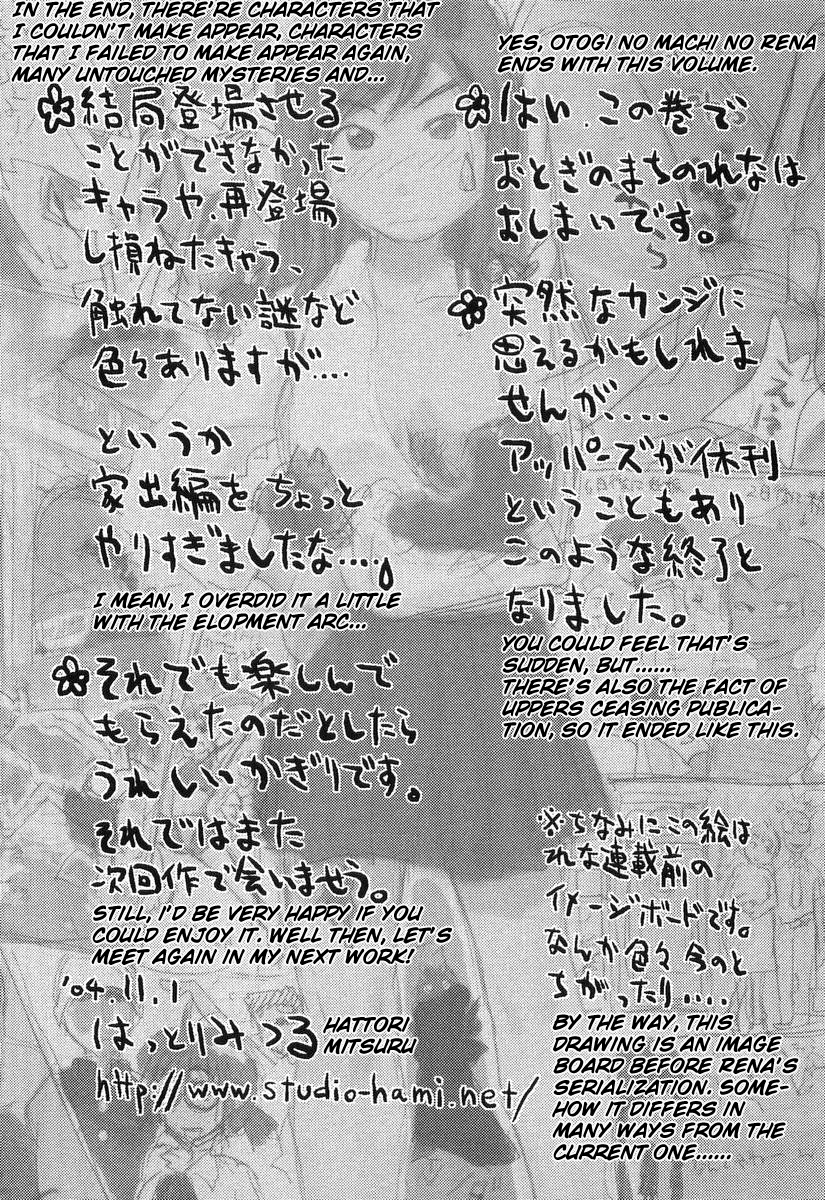 YES, OTOGI NO MACHI NO RENA
ENDS WITH THIS VOLUME.
はい、この巻で
おとぎのまちのれなは
おしまいです。
突然なカンジに
思えるかもしれま
せんが、....
アッパーズが休刊
ということもあり
このような終了と
なりました。
YOU COULD FEEL THAT'S
SUDDEN, BUT......
THERE'S ALSO THE FACT OF
UPPERS CEASING PUBLICA-
TION, SO IT ENDED LIKE THIS.
※ちなみにこの絵は
れな連載前の
イメージボードです。
なんか色々今のと
ちがったり....
BY THE WAY, THIS
DRAWING IS AN IMAGE
BOARD BEFORE RENA'S
SERIALIZATION. SOME-
HOW IT DIFFERS IN
MANY WAYS FROM THE
CURRENT ONE......
IN THE END, THERE'RE CHARACTERS THAT
I COULDN'T MAKE APPEAR, CHARACTERS
THAT I FAILED TO MAKE APPEAR AGAIN,
MANY UNTOUCHED MYSTERIES AND...
結局登場させる
ことができなかった
キャラや、再登場
し損ねたキャラ、
触れてない謎など
色々ありますが....
というか
家出編をちょっと
やりすぎましたな....。
I MEAN, I OVERDID IT A LITTLE
WITH THE ELOPMENT ARC...
それでも楽しんで
もらえたのだとしたら
うれしいかぎりです。
それではまた
次回作で会いませう。
STILL, I'D BE VERY HAPPY IF YOU
COULD ENJOY IT. WELL THEN, LET'S
MEET AGAIN IN MY NEXT WORK!
'04.11.1
はっとりみつる
HATTORI
MITSURU
http://www.studio-hami.net/